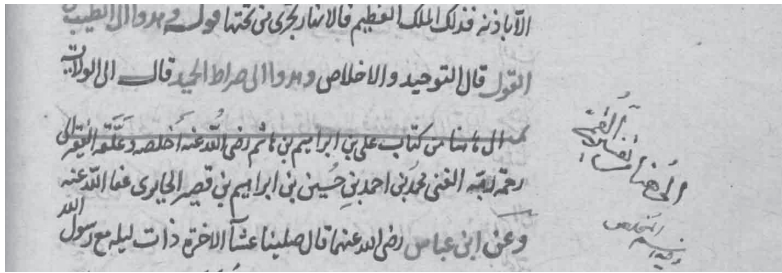 الا باذنه فذلك الملك العظيم فالانهار تجرى من تحتها قوله وهدوا الى الطيب
القول قال التوحيد والاخلاص وهدوا الى صراط الحميد قال الى الولاية
الى هاهنا من كتاب على بن ابراهيم بن هاشم رضى الله عنه اخلصه وعلقه الفقير الى
رحمة ربه الغنى محمد بن احمد بن حسين بن ابراهيم بن قصير الجابرى عفا الله عنه
وعن ابن عباس رضى الله عنهما قال صلينا عشآ الاخرة ذات ليله مع رسول الله
الى هنا